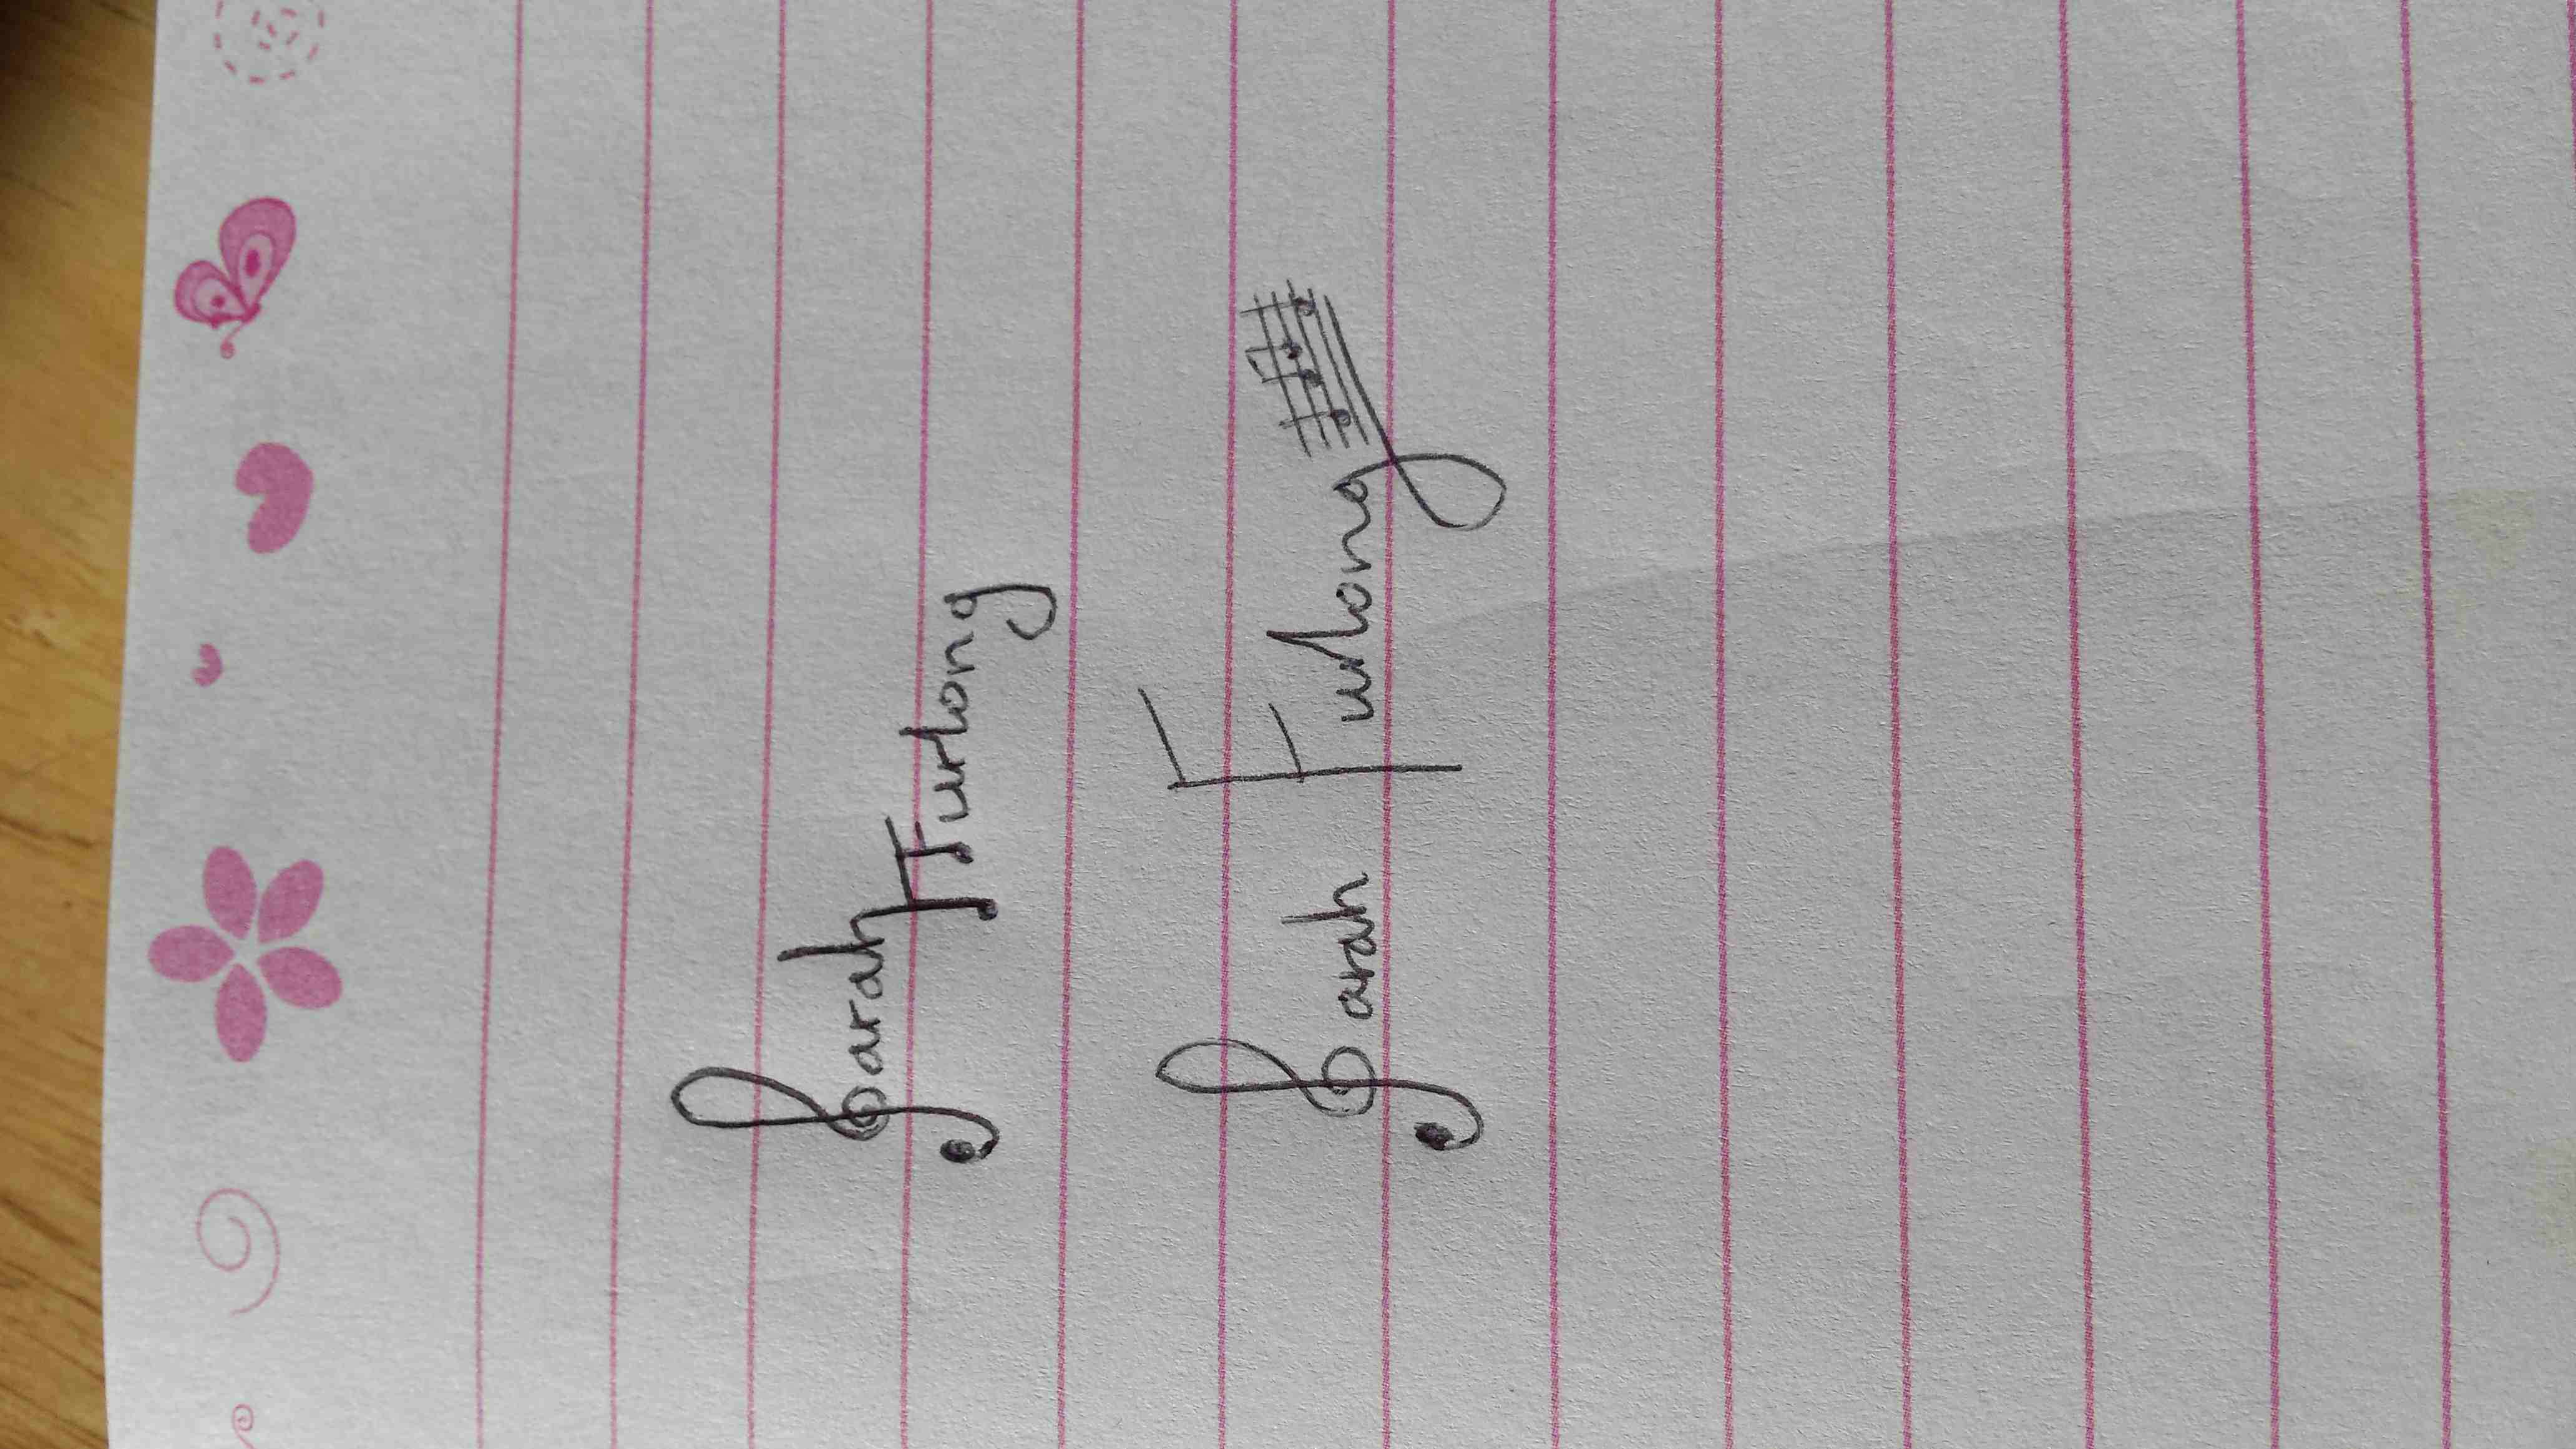 Sarah Furlong
Sarah Furlong